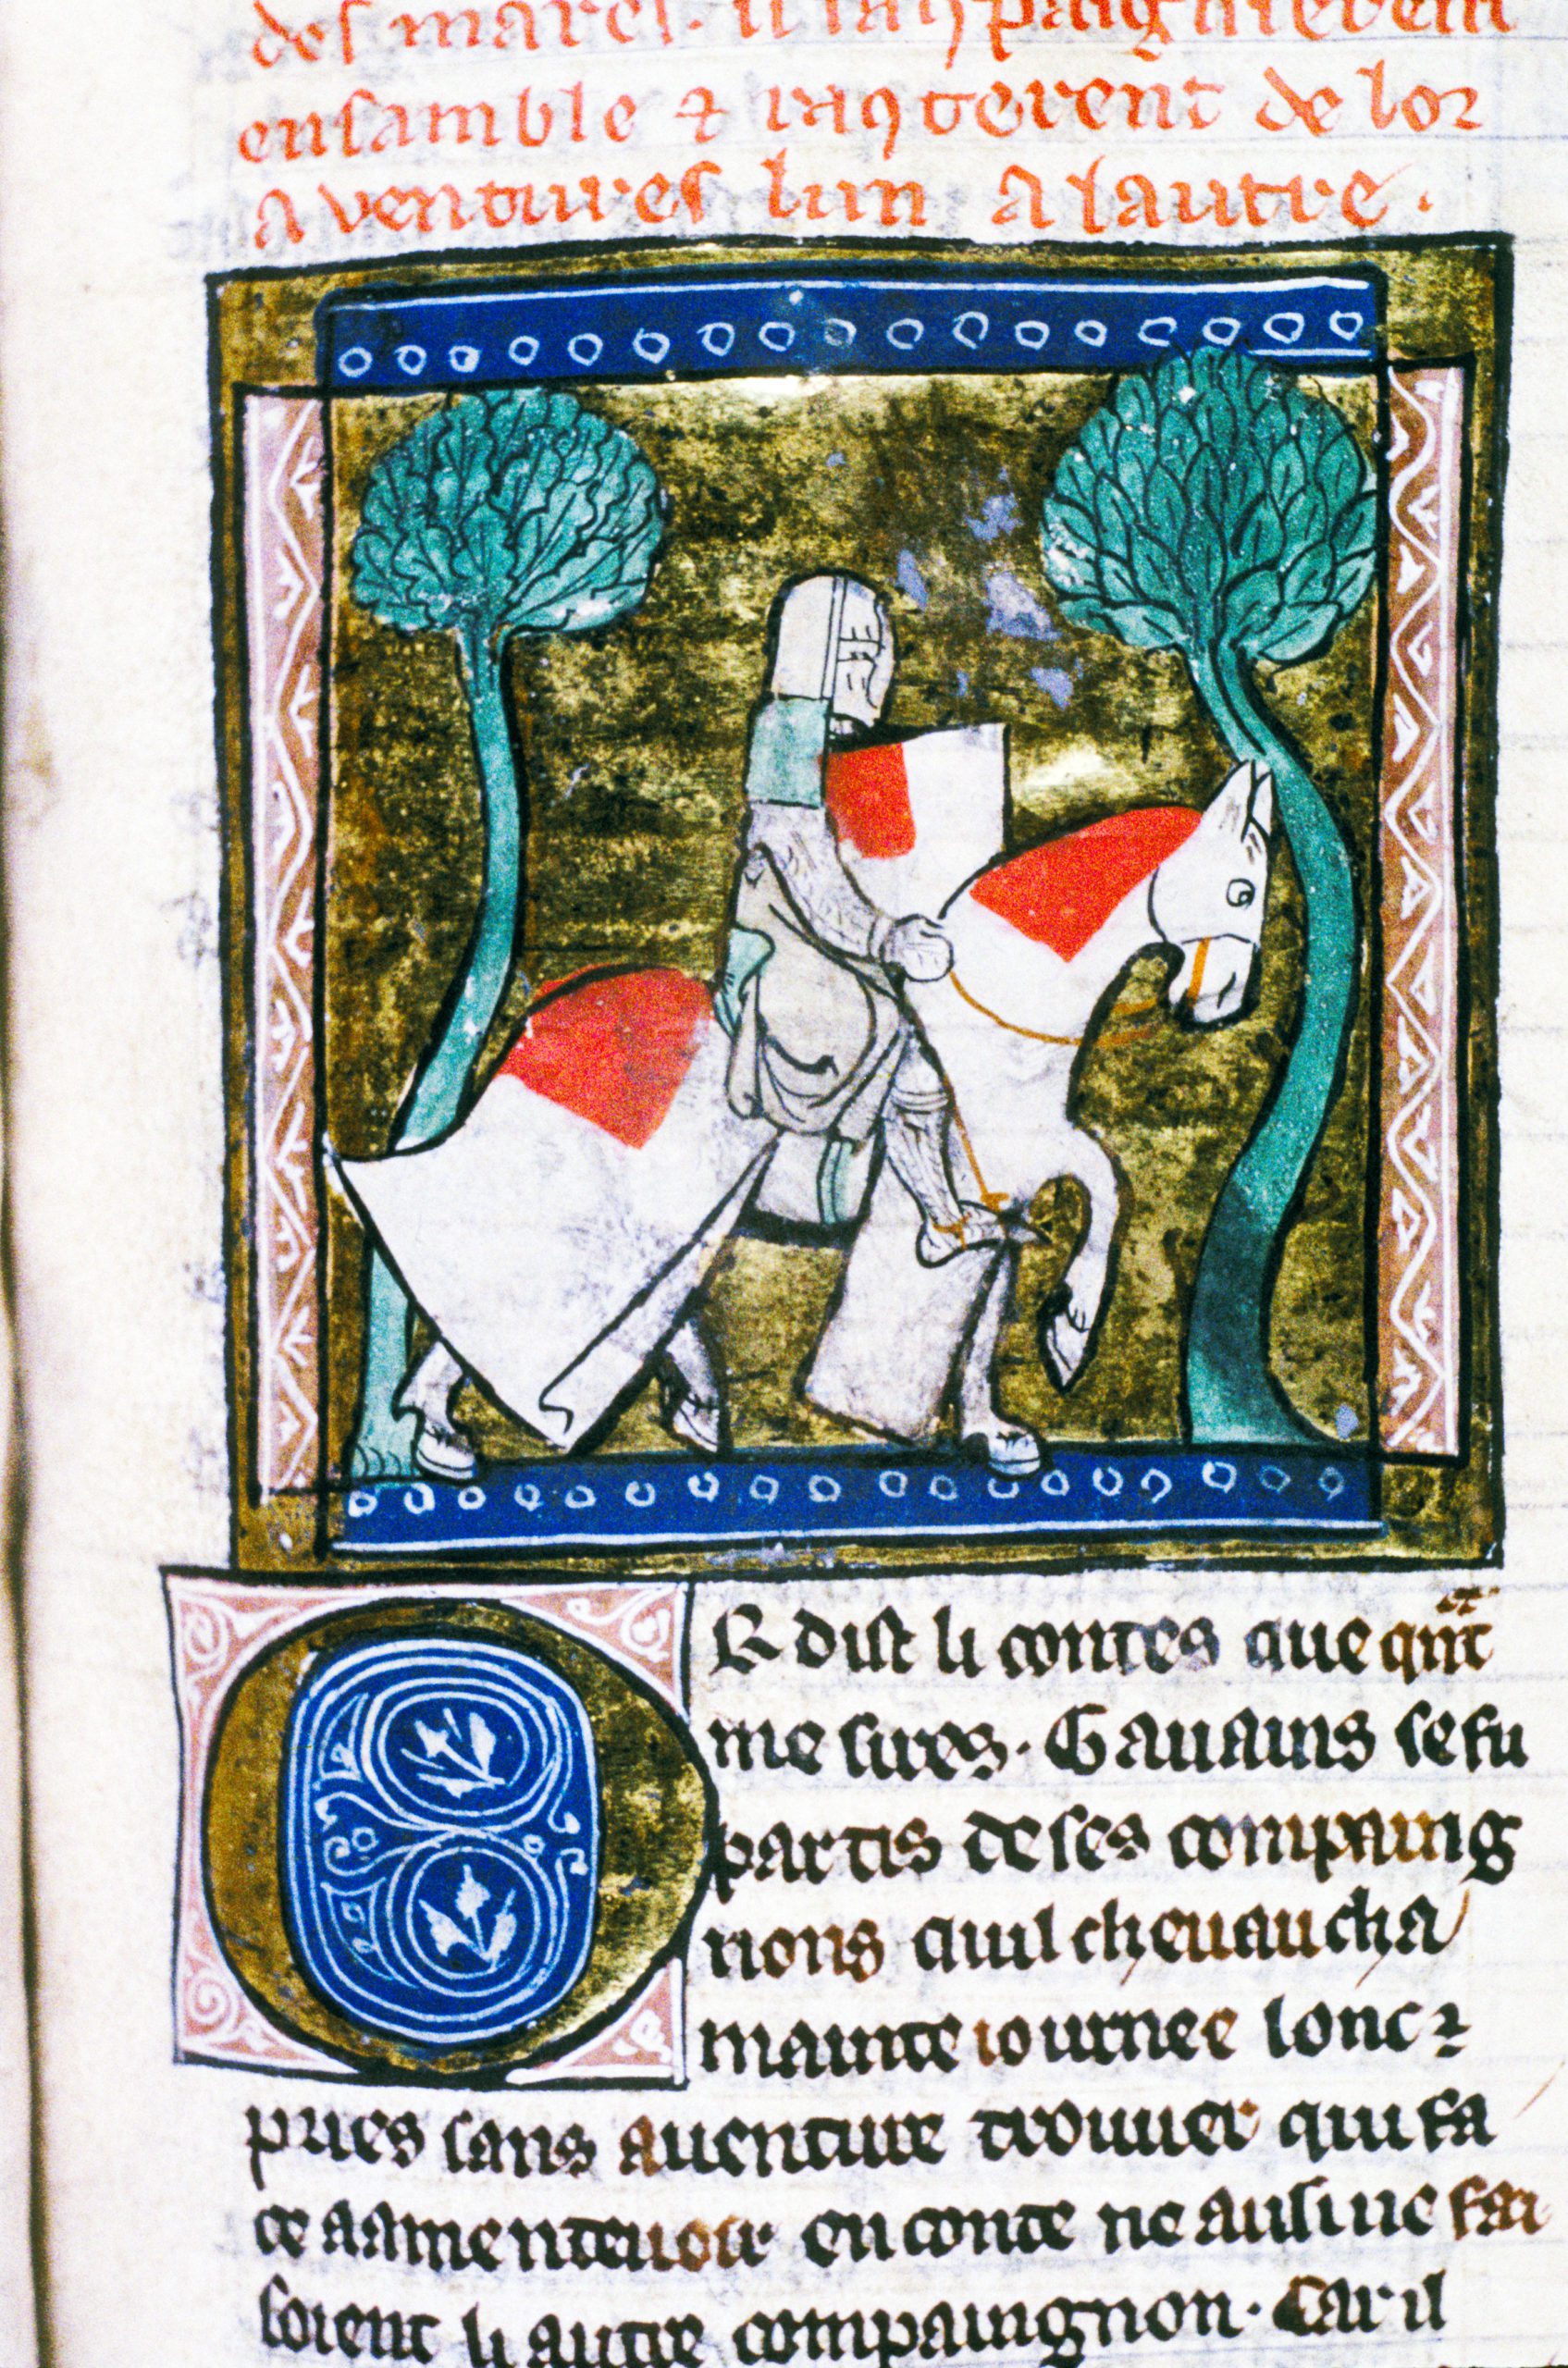 des mares. il sacqpaignierent
ensamble ⁊ racqterent de lor
aventures lun a lautre.
OR dist li contes que qnt
me sires. Gauains se fu
partis de ses compaing
nons quil cheuaucha
mainte iournee lonc ⁊
pres sans auenture trouuer qui fa
ce a amenteuoir en conte ne ausi ne fai
soient li autre compaingnon. Car il